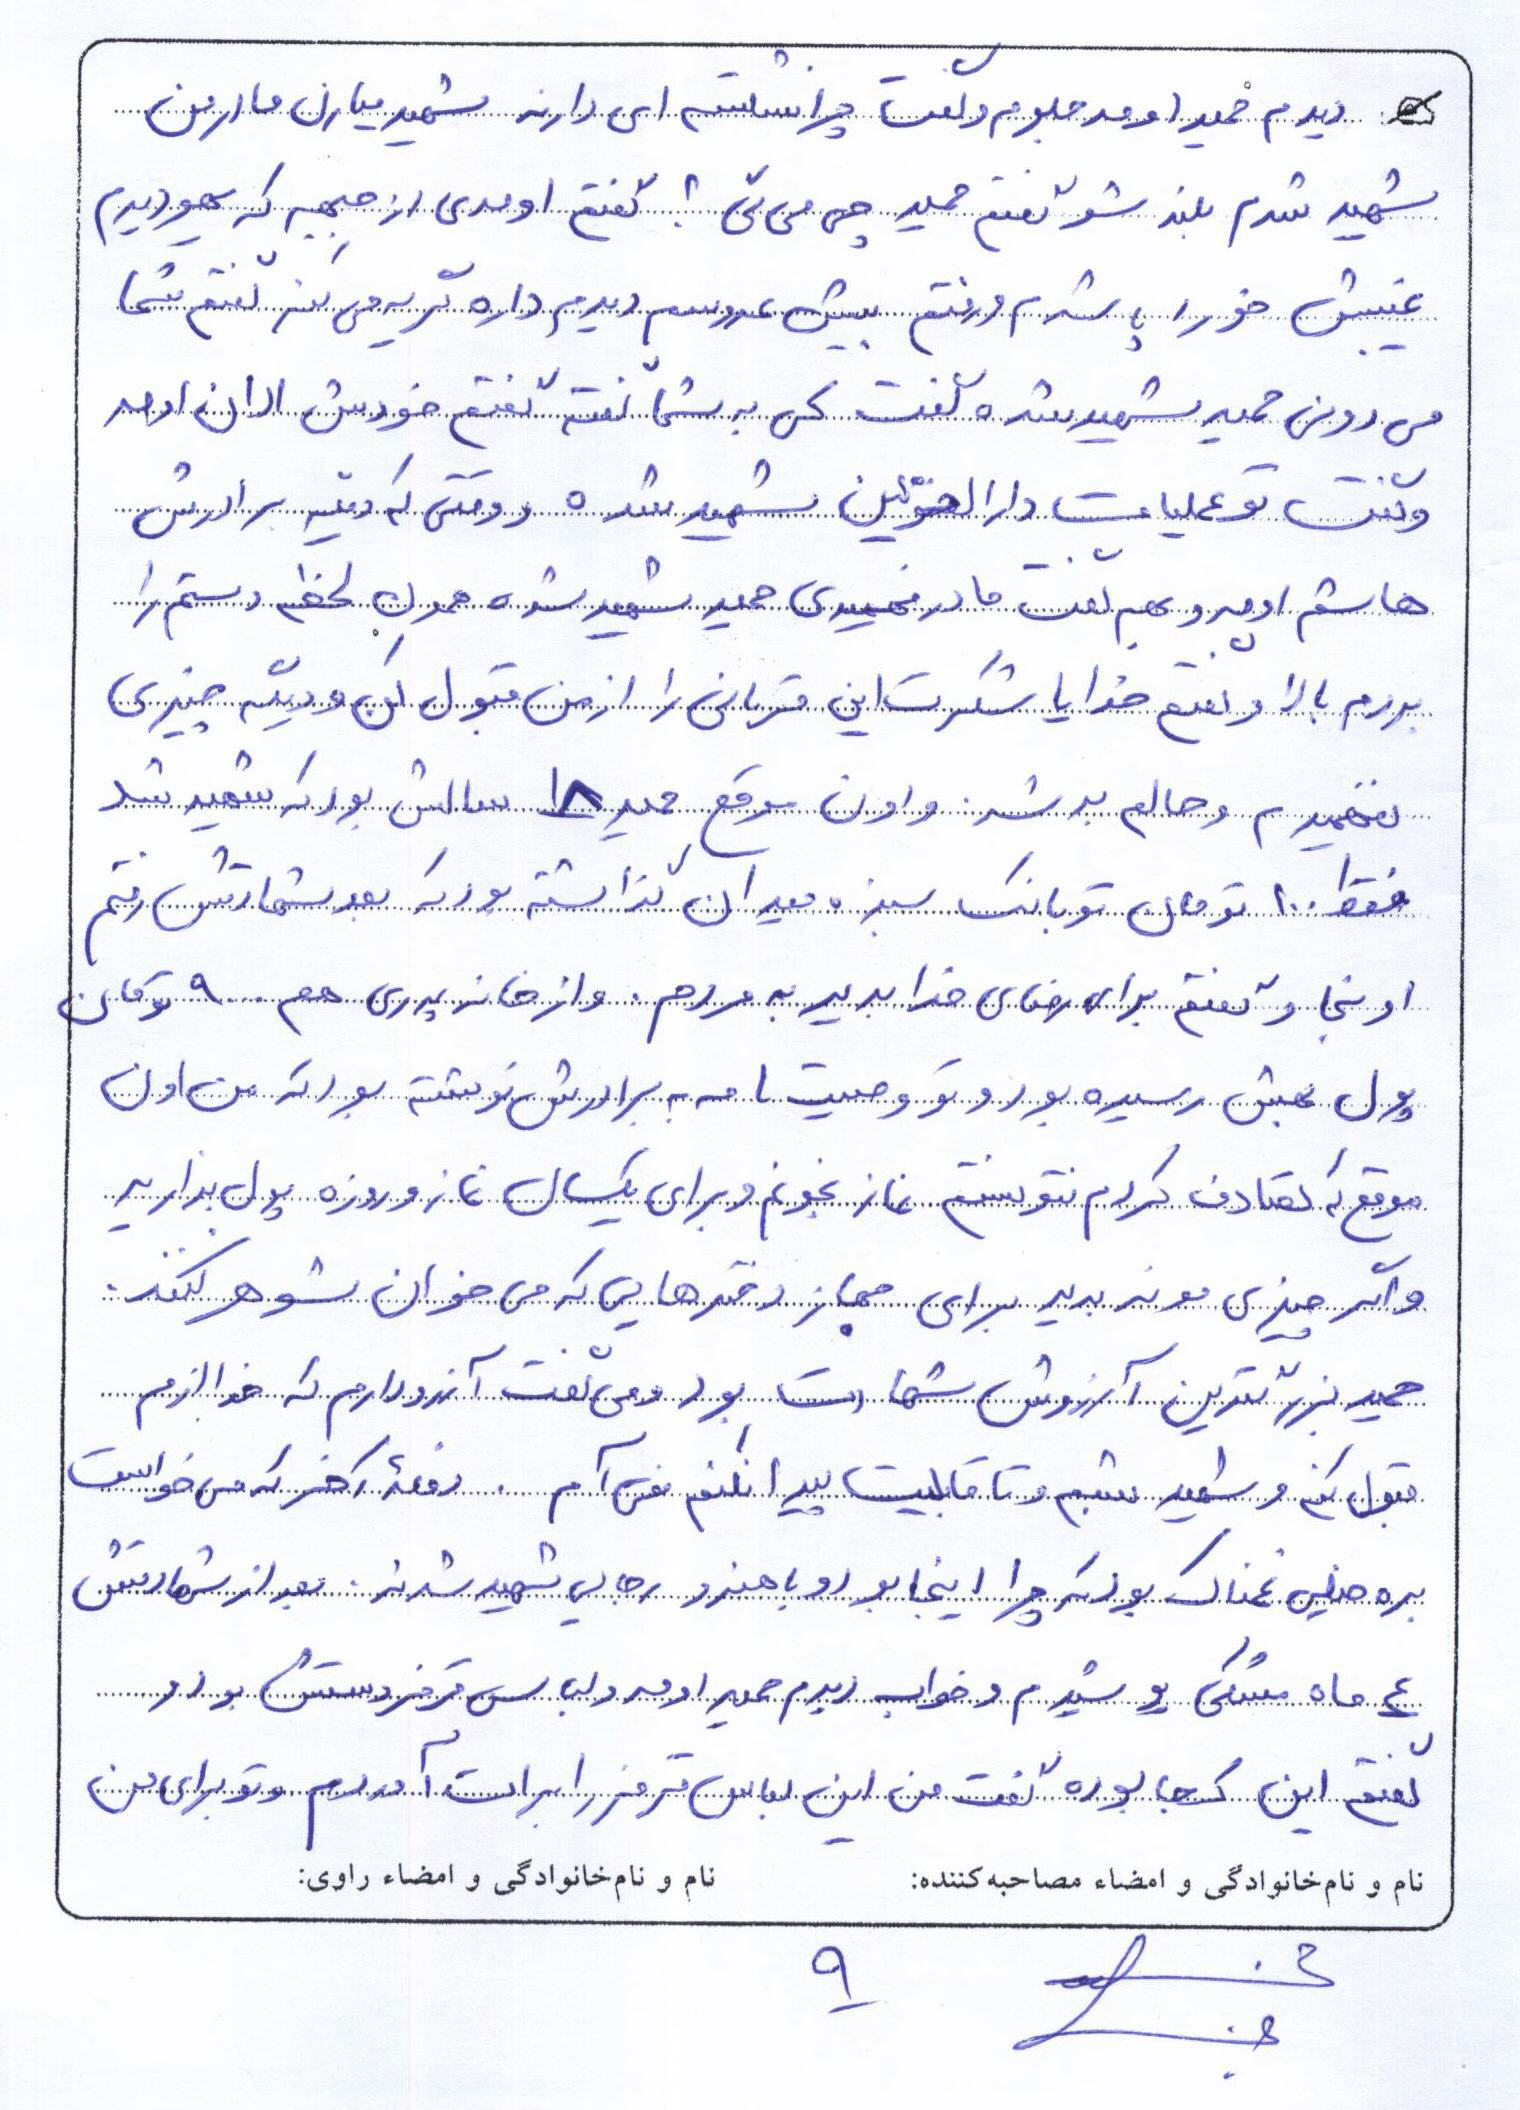 دیدم حمید اومد جلوم و گفت چرا نشسته ای دارند شهید میارن مادر من
شهید شدم بلند شو گفتم حمید چی می گی؟ گفتم اومدی از جبهه که یهو دیدم
غیبش خورد پا شدم و رفتم پیش عروسم دیدم داره گریه می کند گفتم شما
می دونی حمید شهید شده گفت کی به شما گفته گفتم خودش الان اومد
و گفت تو عملیات دارالخوئین شهید شده و وقتی که دیگه برادرش
هاشم اومد و بهم گفت مادر فهمیدی حمید شهید شده همون لحظه دستم را
بردم بالا و گفتم خدایا شکرت این قربانی را از من قبول کن و دیگه چیزی
نفهمیدم و حالم بد شد. و اون موقع حمید ۱۸ سالش بود که شهید شد
فقط ۱۰۰ تومان تو بانک سبزه میدان گذاشته بود که بعد شهادتش رفتم
اونجا و گفتم برای رضای خدا بدید به مردم. و از خانه پدری هم ۹۰۰۰ تومان
پول بهش رسیده بود و تو وصیت نامه به برادرش نوشته بود که من اون
موقع که تصادف کردم نتونستم نماز بخونم و برای یکسال نماز و روزه پول بذارید
و اگر چیزی مونه بدید برای جهاز دخترهایی که می خوان شوهر کنند.
حمید بزرگترین آرزوش شهادت بود و می گفت آرزو دارم که خدا ازم
قبول کنه و شهید شم و تا قابلیت پیدا نکنم نمی آم. دفعهٔ آخر که می خواست
بره خیلی غمناک بود که چرا اینجا بود و باهنر و رجایی شهید شدند. بعد از شهادتش
۴ ماه مشکی پوشیدم و خواب دیدم حمید اومد و لباس قرمز دستش بود و
گفتم این کجا بوده گفت من این لباس قرمز را برات آوردم و تو برای من
نام و نام‌خانوادگی و امضاء مصاحبه‌کننده: نام و نام‌خانوادگی و امضاء راوی:
۹